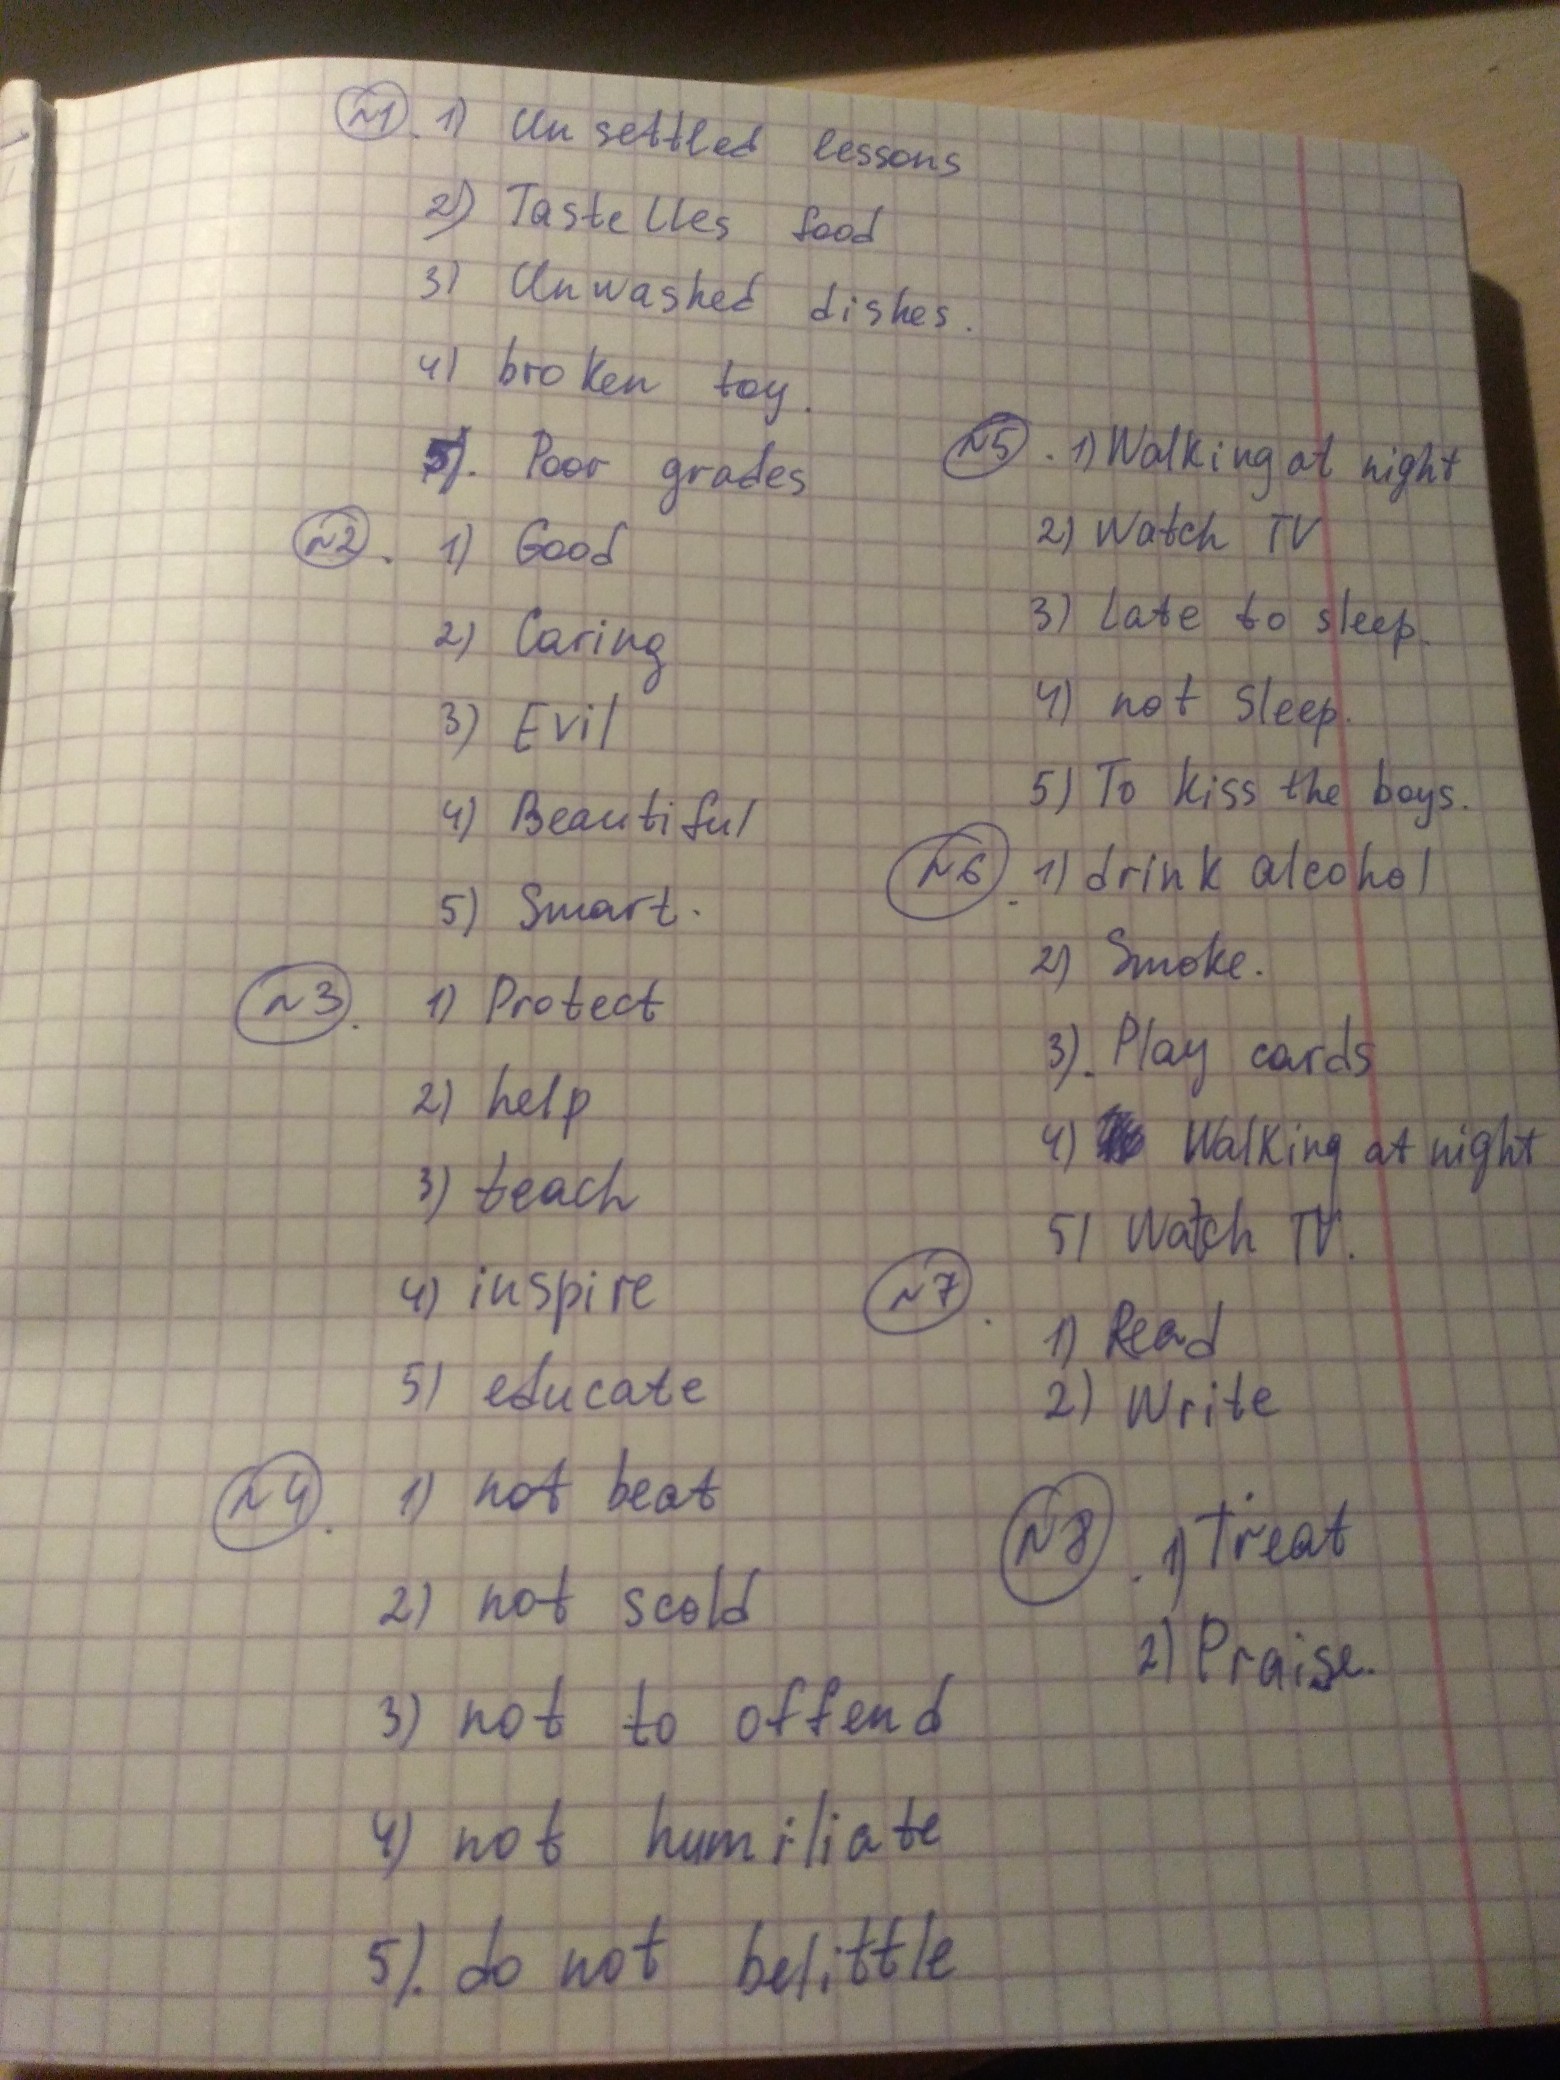 N1. 1) Unsettled lessons
2) Tastelles food
3) Unwashed dishes.
4) broken toy.
5). Poor grades
N2. 1) Good
2) Caring
3) Evil
4) Beautiful
5) Smart.
N3. 1) Protect
2) help
3) teach
4) inspire
5) educate
N4. 1) not beat
2) not scold
3) not to offend
4) not humiliate
5). do not belittle
N5. 1) Walking at night
2) Watch TV
3) Late to sleep.
4) not sleep.
5) To kiss the boys.
N6. 1) drink alcohol
2) Smoke.
3). Play cards
4) Walking at night
5) Watch TV.
N7. 1) Read
2) Write
N8. 1) Treat
2) Praise.